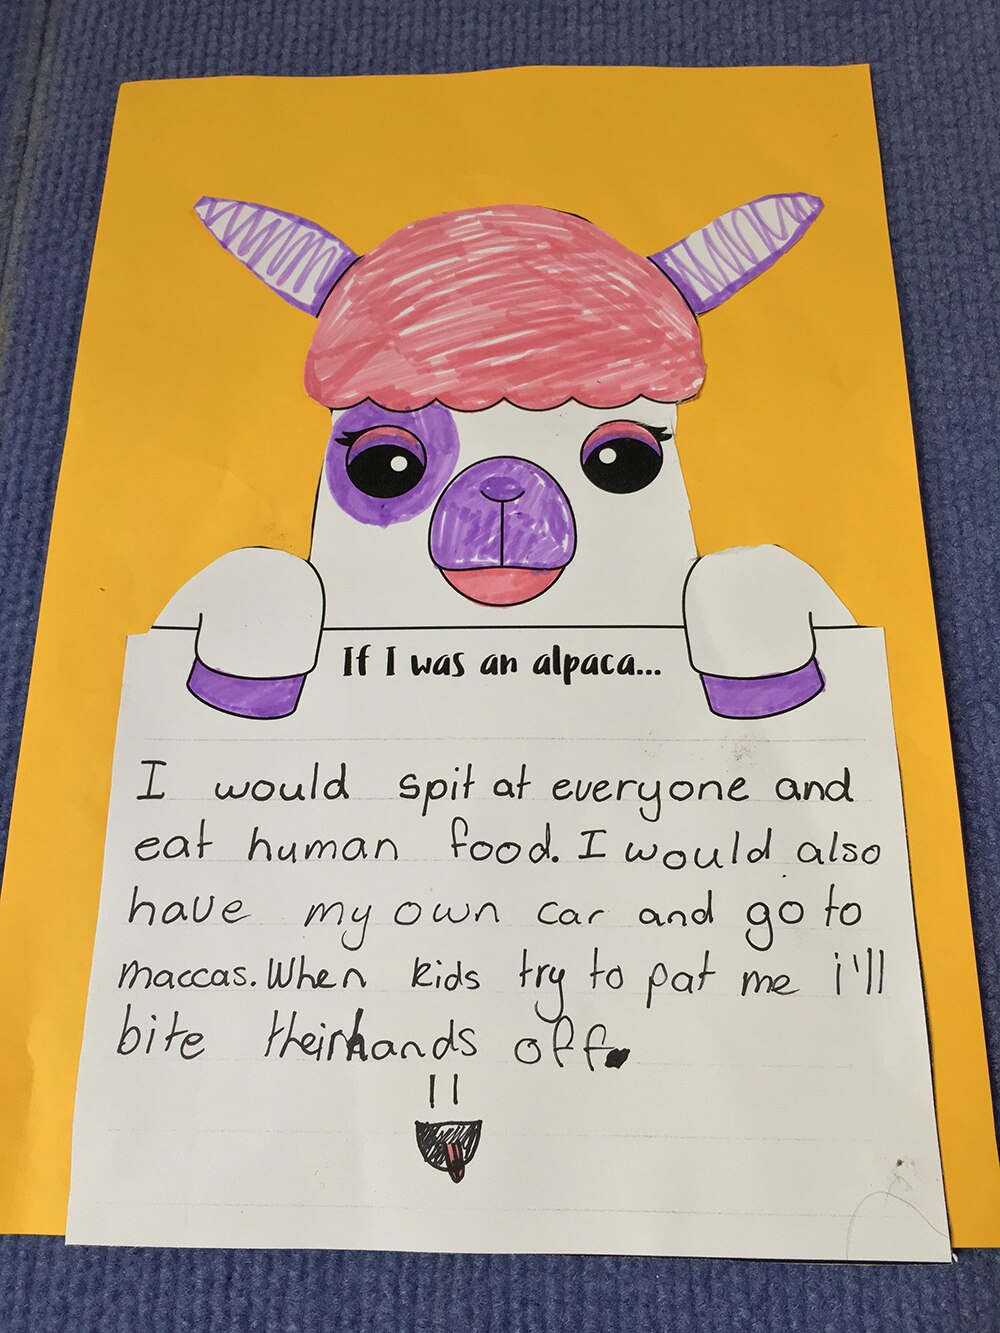 If I was an alpaca...
I would spit at everyone and
eat human food. I would also
have my own car and go to
maccas. When kids try to pat me i'll
bite their hands off.